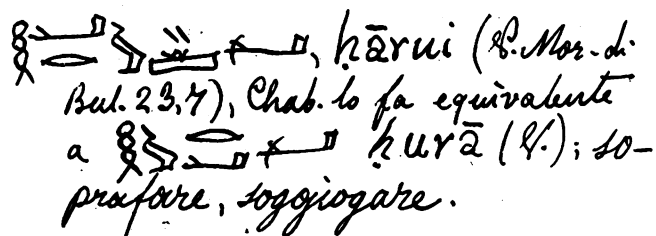 ḥārui (V. Mor. di
Bul. 23,7), Chab. lo fa equivalente
a ḥurā (V.); so-
prafare, soggiogare.